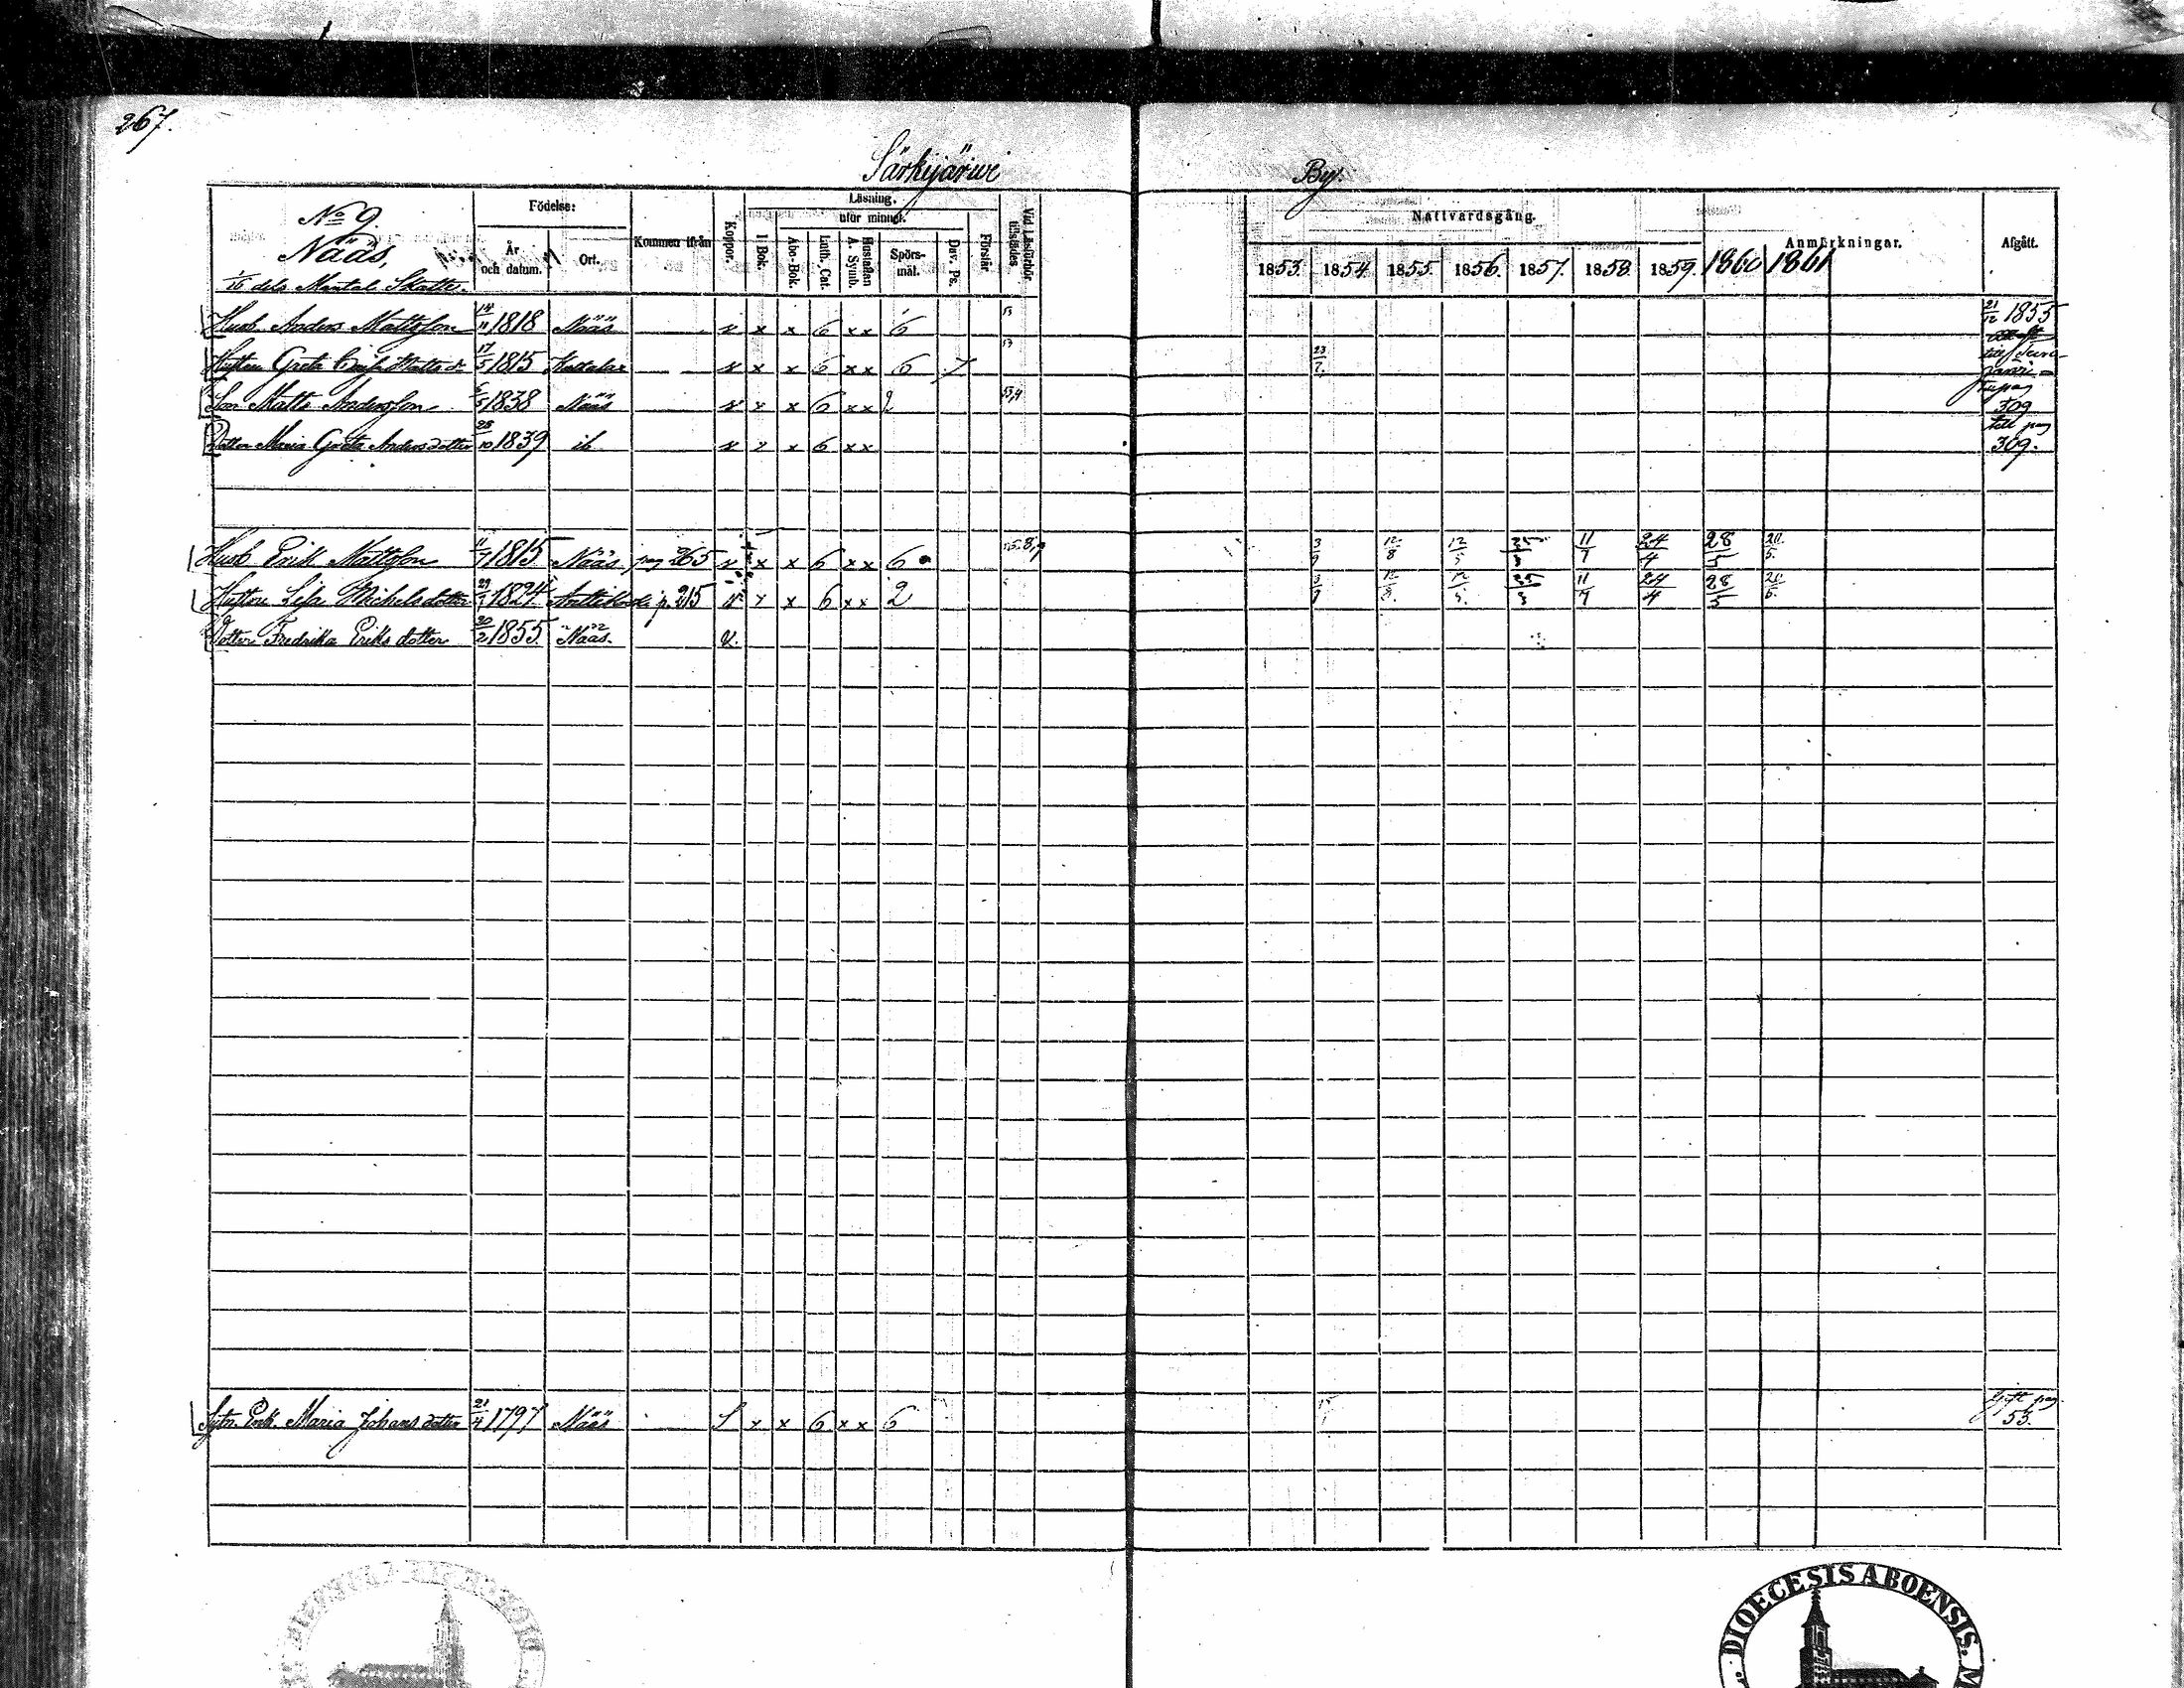 267.
Särkijärwi By.
No 9.
Nääs,
1/16 dels Mantal Skatte.
Födelse:
År och datum. Ort.
Kommen ifrån
Koppor.
Läsning.
utur minnet.
I Bok.
Abc-Bok.
Luth. Cat.
Hustaflan A. Symb.
Spörs-mål.
Dav. Ps.
Förstår
Vid Läsförhör tillstädes
Nattvardsgång.
1853. 1854. 1855. 1856. 1857. 1858. 1859. 1860 1861
Anmärkningar.
Afgått.
Husb. Anders Mattsson 14/11 1818 Nääs x x x 6 x x 6 53 21/12 1855
Hustru Greta 17/5 1815 x x x 6 x x 6 7 53 23/7
Son Matts Andersson 6/5 1838 Nääs x x x 6 x x 2 53,4 309
Dotter Maria Greta Andersdotter 25/10 1839 ib x x x 6 x x till pag 309.
Husb Erik Mattsson 1815 Nääs pag 265 x x x 6 x x 6 3/9 12/8 12/5 25/3 11/7 24/4 28/5 20/5.
Hustru Lisa Michelsdotter 1824 p. 215 x x x 6 x x 2 3/9 12/8. 12/5. 25/3 11/7 24/4 28/5 20/5.
Dotter Fredrika Eriks dotter 20/2 1855 Nääs. v.
Sytn. Enk. Maria Johans dotter 21/4 1797 Nääs x x 6 x x 6 Gift pag. 53.
DIOECESIS ABOENSIS. M